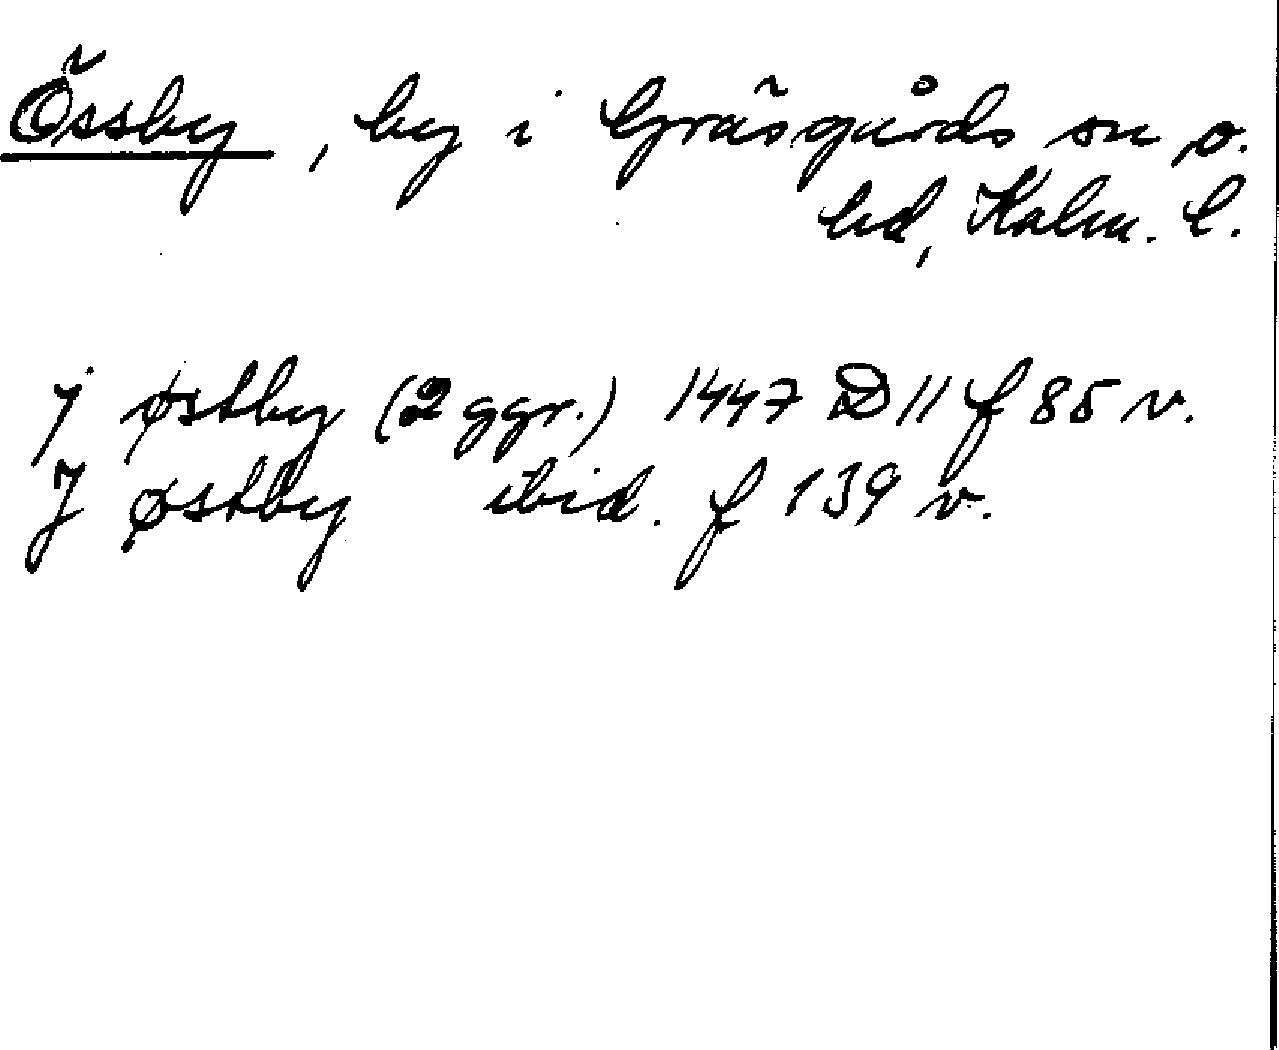 Össby, by i Gräsgårds sn o.
hd, Kalm. l.
j østby (2 ggr.) 1447 D 11 f 85 v.
J østby ibid. f 139 v.